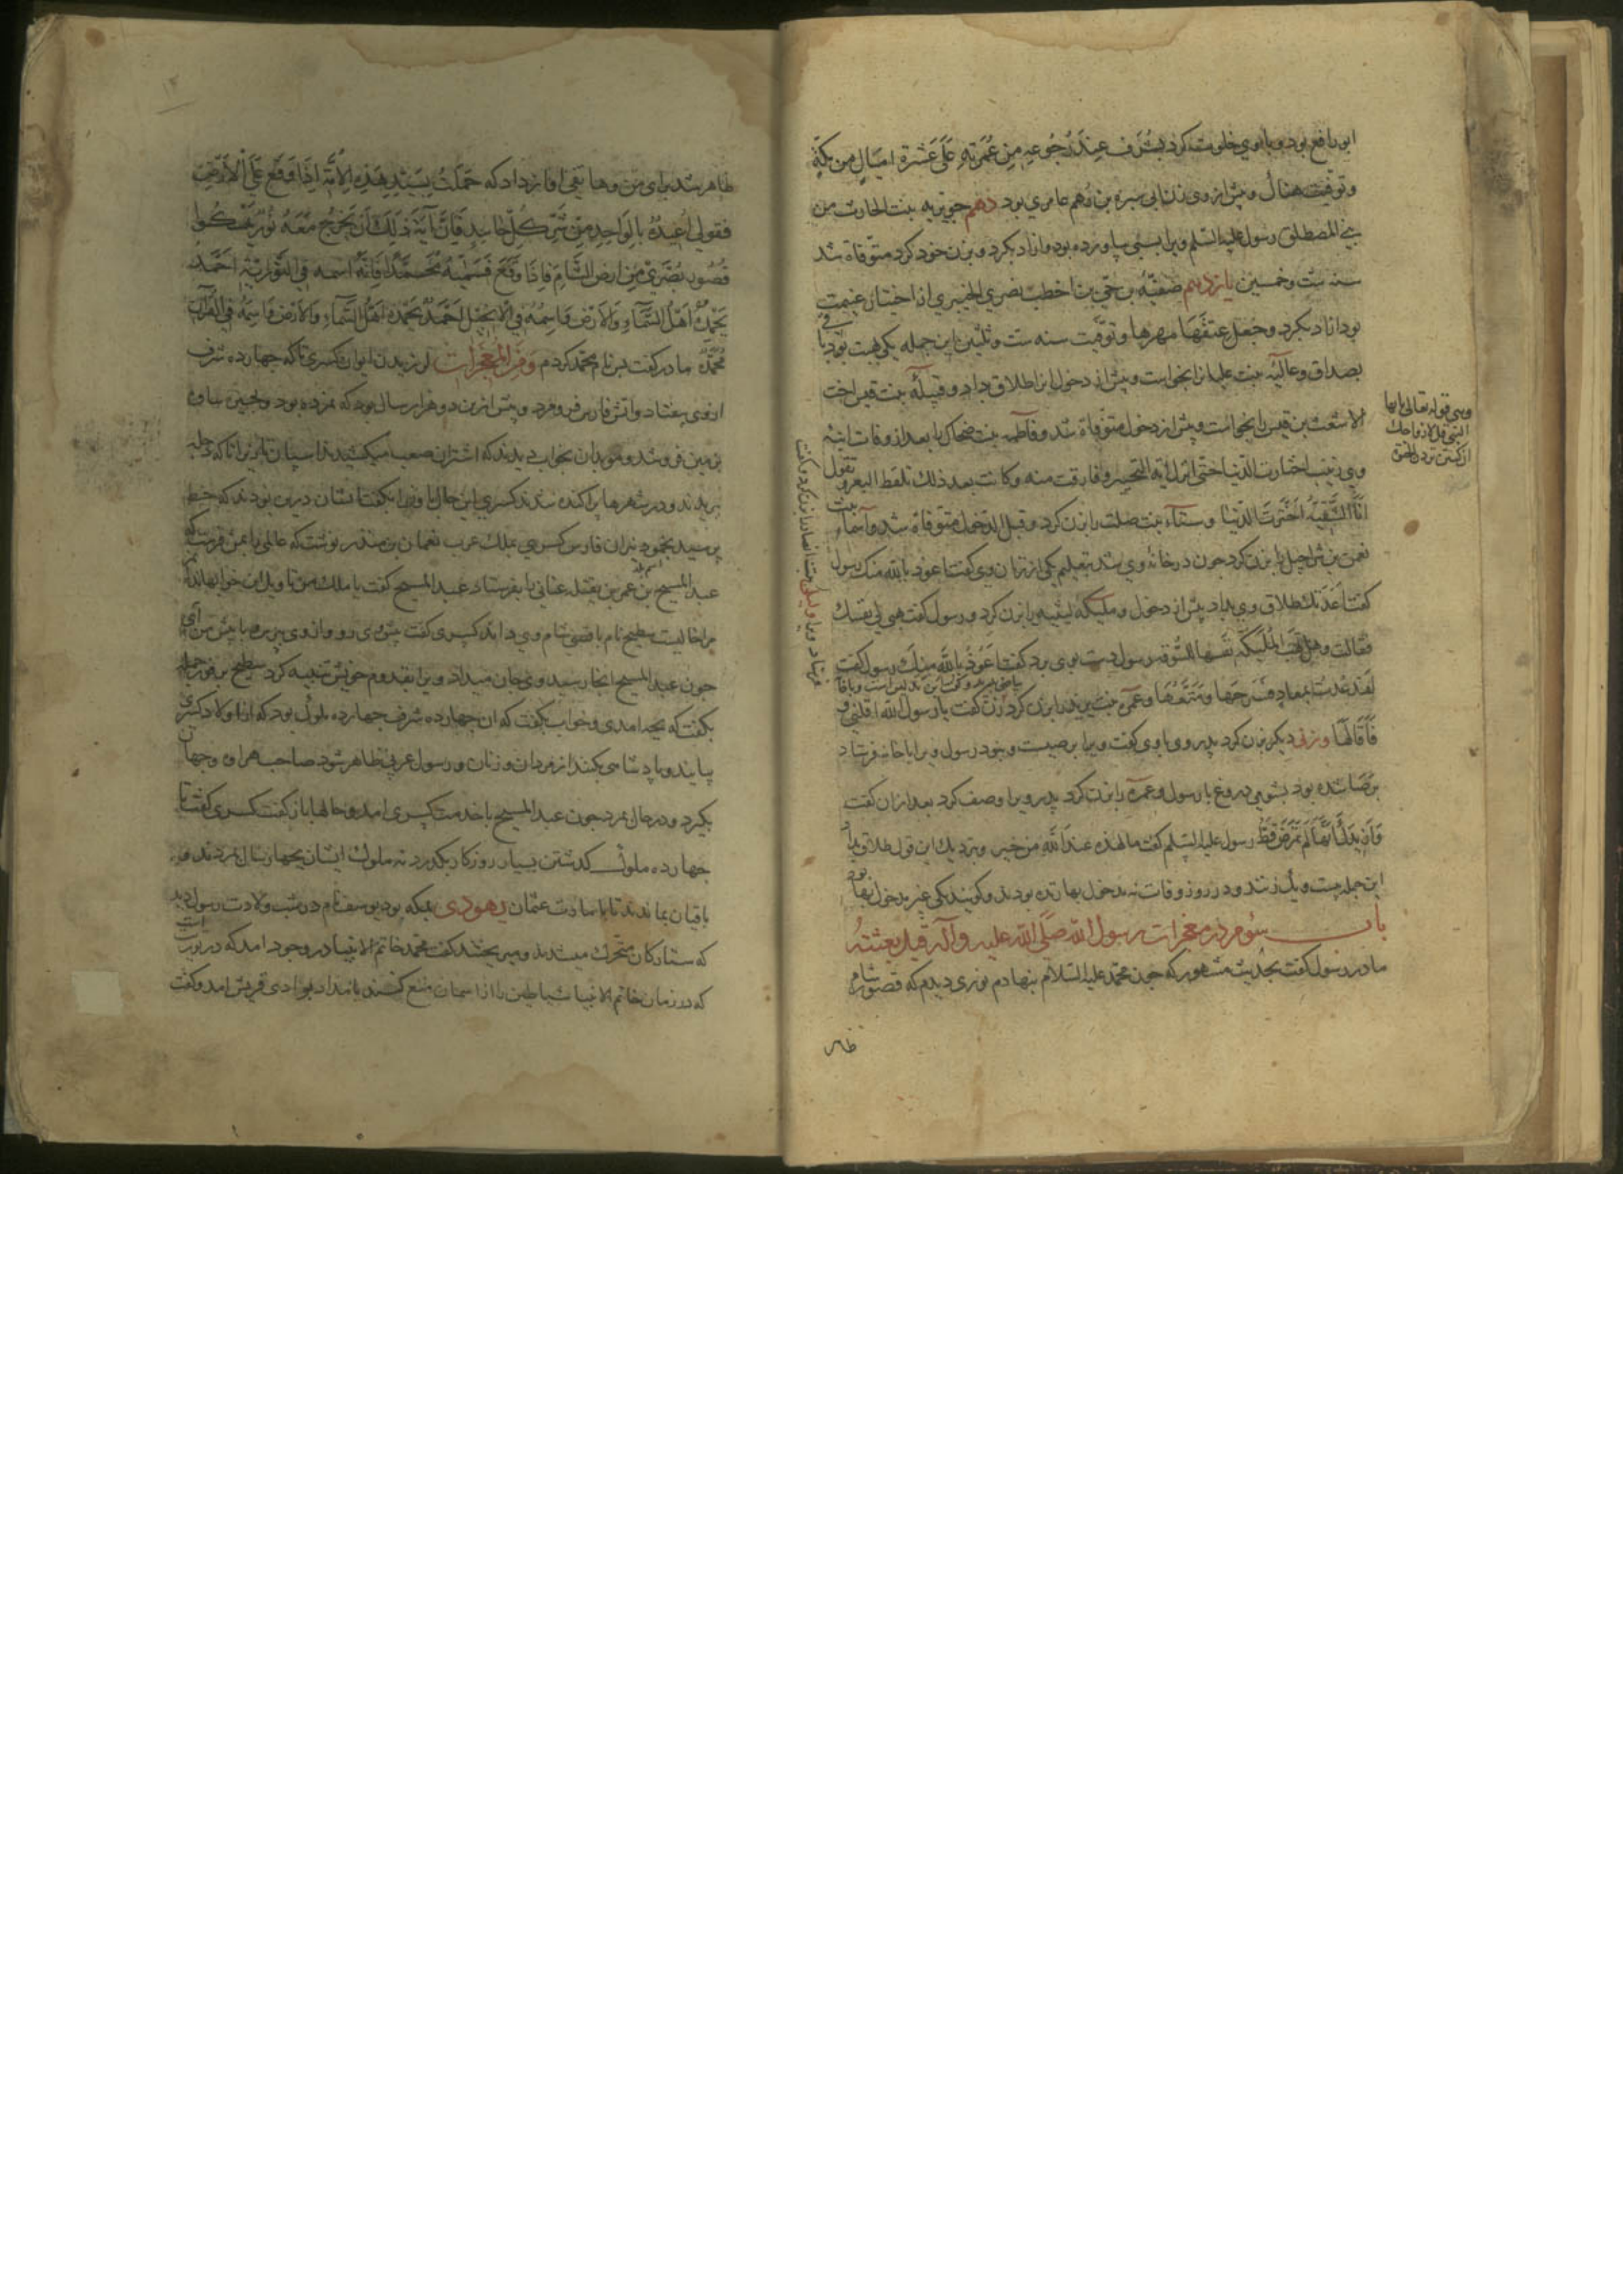 ابو رافع بود و با وی خلوت کرد بسرف عند رجوعه من عمرته علی عشرة امیال من مکة
وتوفیت هناك و پیش از وی زن ابی سبره بن رهم عامری بود دهم جویریه بنت الحارث من
بنی المصطلق رسول علیه السلم ویرا بسبی بیاورده بود و ازاد بکرد و بزن خود کرد متوفاة شد
سنه ست وخمسین یازدهم صفیّه بن حیّ بن اخطب نضری الخیبری از اختیار غنیمت
بود ازاد بکرد وجعل عتقها مهرها وتوفیت سنه ست وثلثین این جمله یکی هبت بود
بصداق وعالیه بنت بخواست و پیش از دخول طلاق داد و قبیله بنت قیس اخت
الاشعث بن قیس را بخواست و پیش از دخول متوفاة شد و فاطمه بنت ضحاك را بعد از وفات ابنه
وی زینب اختارت الدنیا حتی انزل آیة التخییر وفارقت منه وکانت بعد ذلك تلقط البعر وتقول
انا الشقیّه اخترت الدنیا وسناء بنت صلت را بزن کرد و قبل الدخول متوفاة شد و اسماء بنت
نعمن بن شراحیل را بزن کرد چون در خانه وی شد بتعلیم یکی از زنان وی گفت اعوذ بالله منك رسول
گفت اعذتك طلاق وی بداد پیش از دخول و ملیکه لیثیه را بزن کرد و رسول گفت هبی لی نفسك
فقالت وهل تهب الملیکة نفسها للسوقه رسول دست بوی برد گفت اعوذ بالله منك رسول گفت
لقد عذت بمعاذ فسرحها ومتعها و عمره بنت یزید را بزن کرد زن گفت یا رسول الله اقلنی
فاقالها و زنی دیگر بزن کرد پدر وی با وی گفت ویرا برصیست و نبود رسول ویرا با خانه فرستاد
برصا شده بود بشومی دروغ با رسول و عمره را بزن کرد پدر ویرا وصف کرد بعد از آن گفت
وازیدك انها لم تمرض قط رسول علیه السلم گفت ما لهذه عند الله من خیر و نزدیك این قول طلاق بداد
این جمله بیست و یك زنند و در روز وفات نه مدخول بها زنده بودند و گویند یکی غیر مدخول بها بود
باب سوم در معجزات رسول الله صلی الله علیه وآله قبل بعثته
مادر رسول گفت بحدیث مشهور که چون محمد علیه السلام بنهادم نوری دیدم که قصور شام
ظاهر
وهی قوله تعالی یا ایها
النبی قل لازواجك
ان کنتن تردن الحیوة
ظاهر شد برای من و هاتفی اواز داد که حملت بسید هذه الامة اذا وقع علی الارض
فقولی اعیذه بالواحد من شر کل حاسد فان آیة ذلك ان یخرج معه نور
قصور بصری من ارض الشام فاذا وقع فسمیه محمدا فانه اسمه فی التوریة احمد
یحمده اهل السماء والارض واسمه فی الانجیل احمد یحمده اهل السماء والارض واسمه فی القرآن
محمد مادر گفت پس نام محمد کردم ومن المعجزات لرزیدن ایوان کسری تا که چهارده شرف
از وی بیفتاد و اتش فارس فرو مرد و پیش ازین دو هزار سال بود که نمرده بود و بحیره ساوه
بزمین فرو شد و موبدان بخواب دیدند که اشتران صعب میکشیدند اسپان تازی را تا که دجله
بریدند و در شهرها پراکنده شدند کسری این حال با وزرا بگفت ایشان درین بودند که خط
برسید بخمود نیران فارس کسری بملك عرب نعمان بن منذر نوشت که عالمی با من فرست
عبد المسیح بن عمر بن بقیله غسانی را بفرستاد عبد المسیح گفت یا ملك من تاویل این خواب ندانم
مرا خالیست سطیح نام باقصی شام وی داند کسری گفت پیش وی رو و از وی بپرس با پیش من آی
چون عبد المسیح انجا رسید وی جان میداد ویرا بقدوم خویش تنبیه کرد سطیح بر فور جمله
بگفت که بچه امدی و خواب بگفت که ان چهارده شرف چهارده ملوك بود که از اولاد کسری
بیایند و پادشاهی بکنند از مردان و زنان و رسول عربی ظاهر شود صاحب هراوه وجهان
بگیرد و در حال بمرد چون عبد المسیح با خدمت کسری امد و حالها باز گفت کسری گفت تا
چهارده ملوك گذشتن بسیار روزگار بگذرد نه ملوك ایشان بچهار سال بمردند و
باقیان بماندند تا بامارت عثمان یهودی بمکه بود یوسف نام در شب ولادت رسول دید
که ستارگان متحرك میشدند و میریختند گفت محمد خاتم الانبیا در وجود امد که در تورات است
که در زمان خاتم الانبیا شیاطین را از اسمان منع کنند بامداد بوادی قریش امد و گفت